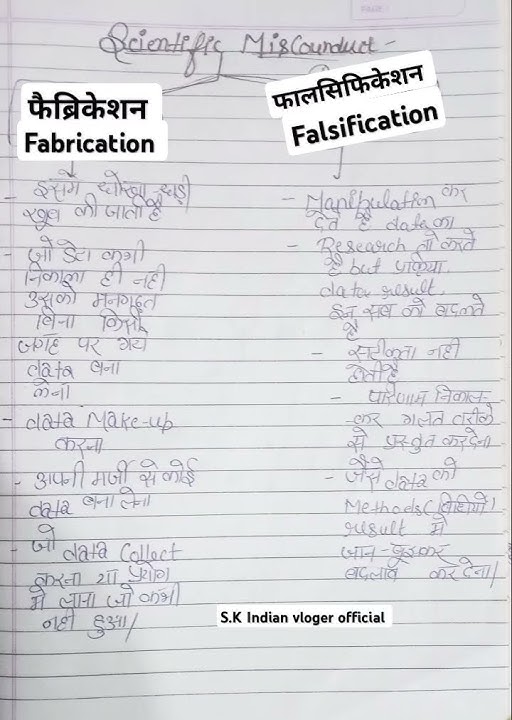 Scientific Miscounduct -
फैब्रिकेशन
Fabrication
फालसिफिकेशन
Falsification
- इसमे धोखा धड़ी
खूब की जाती है
- जो डेटा कभी
निकाला ही नही
उसको मनगढ़त
बिना किसी
जगह पर गये
data बना
लेना
- data Make-up
करना
- अपनी मर्जी से कोई
data बना लेना
- जो data Collect
करना या प्रयोग
मे लाना जो कभी
नही हुआ/
- Manipulation कर
देते है data का
- Research तो करते
है but प्रक्रिया,
data result,
इन सब को बदलते
है
- सटीकता नही
होती है
- परिणाम निकाल-
कर गलत तरीके
से प्रस्तुत कर देना
- जैसे data को
Methods (विधियों)
result मे
जान-बूझकर
बदलाव कर देना/
S.K Indian vloger official